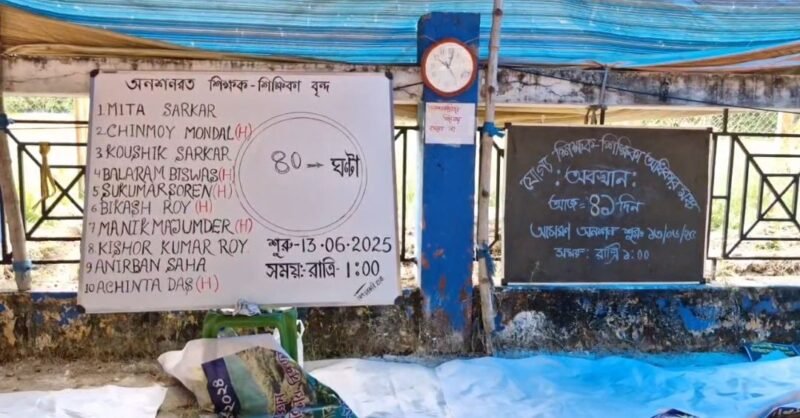 অনশনরত শিক্ষক-শিক্ষিকা বৃন্দ
1 MITA SARKAR
2. CHINMOY MONDAL (H)
3 KOUSHIK SARKAR
4 BALARAM BISWAS (H)
5 SUKUMAR SOREN (H)
6 BIKASH ROY (H)
7 MANIK MAJUMDER (H)
8. KISHOR KUMAR ROY
9 ANIRBAN SAHA
10 ACHINTA DAS (H)
৪০ → ঘণ্টা
শুরু-13.06.2025
সময়:- রাত্রি- 1:00
যোগ্য শিক্ষক-শিক্ষিকা অধিকার মঞ্চ
: অবস্থান:
আজ= ৪১ দিন
আমরণ অনশন শুরু: ১৩/০৬/২৫
সময়: রাত্রি ১:00
2028